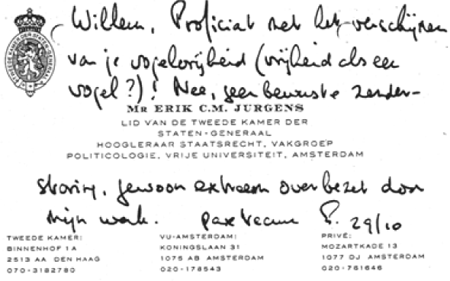 Willem, Proficiat met het verschijnen
van je vogelvrijheid (vrijheid als een
vogel?)! Nee, geen bewuste zender-
MR ERIK C.M. JURGENS
LID VAN DE TWEEDE KAMER DER
STATEN-GENERAAL
HOOGLERAAR STAATSRECHT, VAKGROEP
POLITICOLOGIE, VRIJE UNIVERSITEIT, AMSTERDAM
storing, gewoon extreem overbezet door
mijn werk. Pax tecum E. 29/10
TWEEDE KAMER: VU-AMSTERDAM: PRIVÉ:
BINNENHOF 1A KONINGSLAAN 31 MOZARTKADE 13
2513 AA DEN HAAG 1075 AB AMSTERDAM 1077 DJ AMSTERDAM
070-3182780 020-178543 020-761646